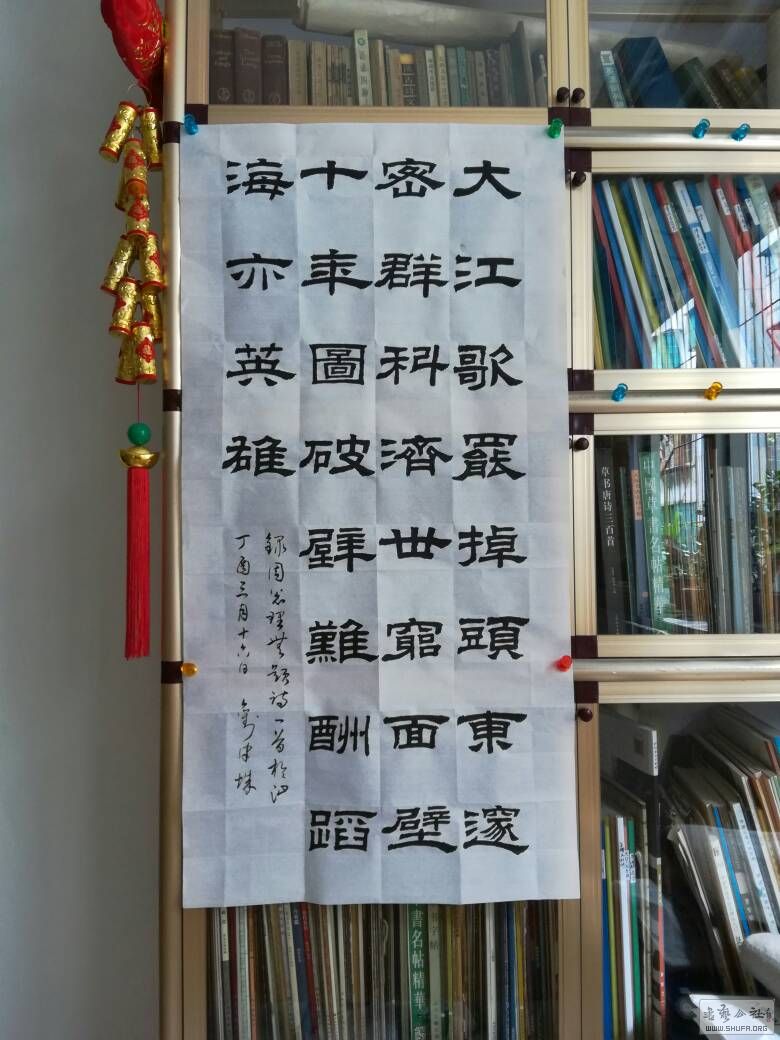 大江歌罷掉頭東邃
密群科濟世窮面壁
十年圖破壁難酬蹈
海亦英雄
錄周总理無题诗一首於
丁酉三月十六日
草书唐诗三百首
中國草書名帖精華
書名帖精華
书艺公社
WWW.SHUFA.ORG